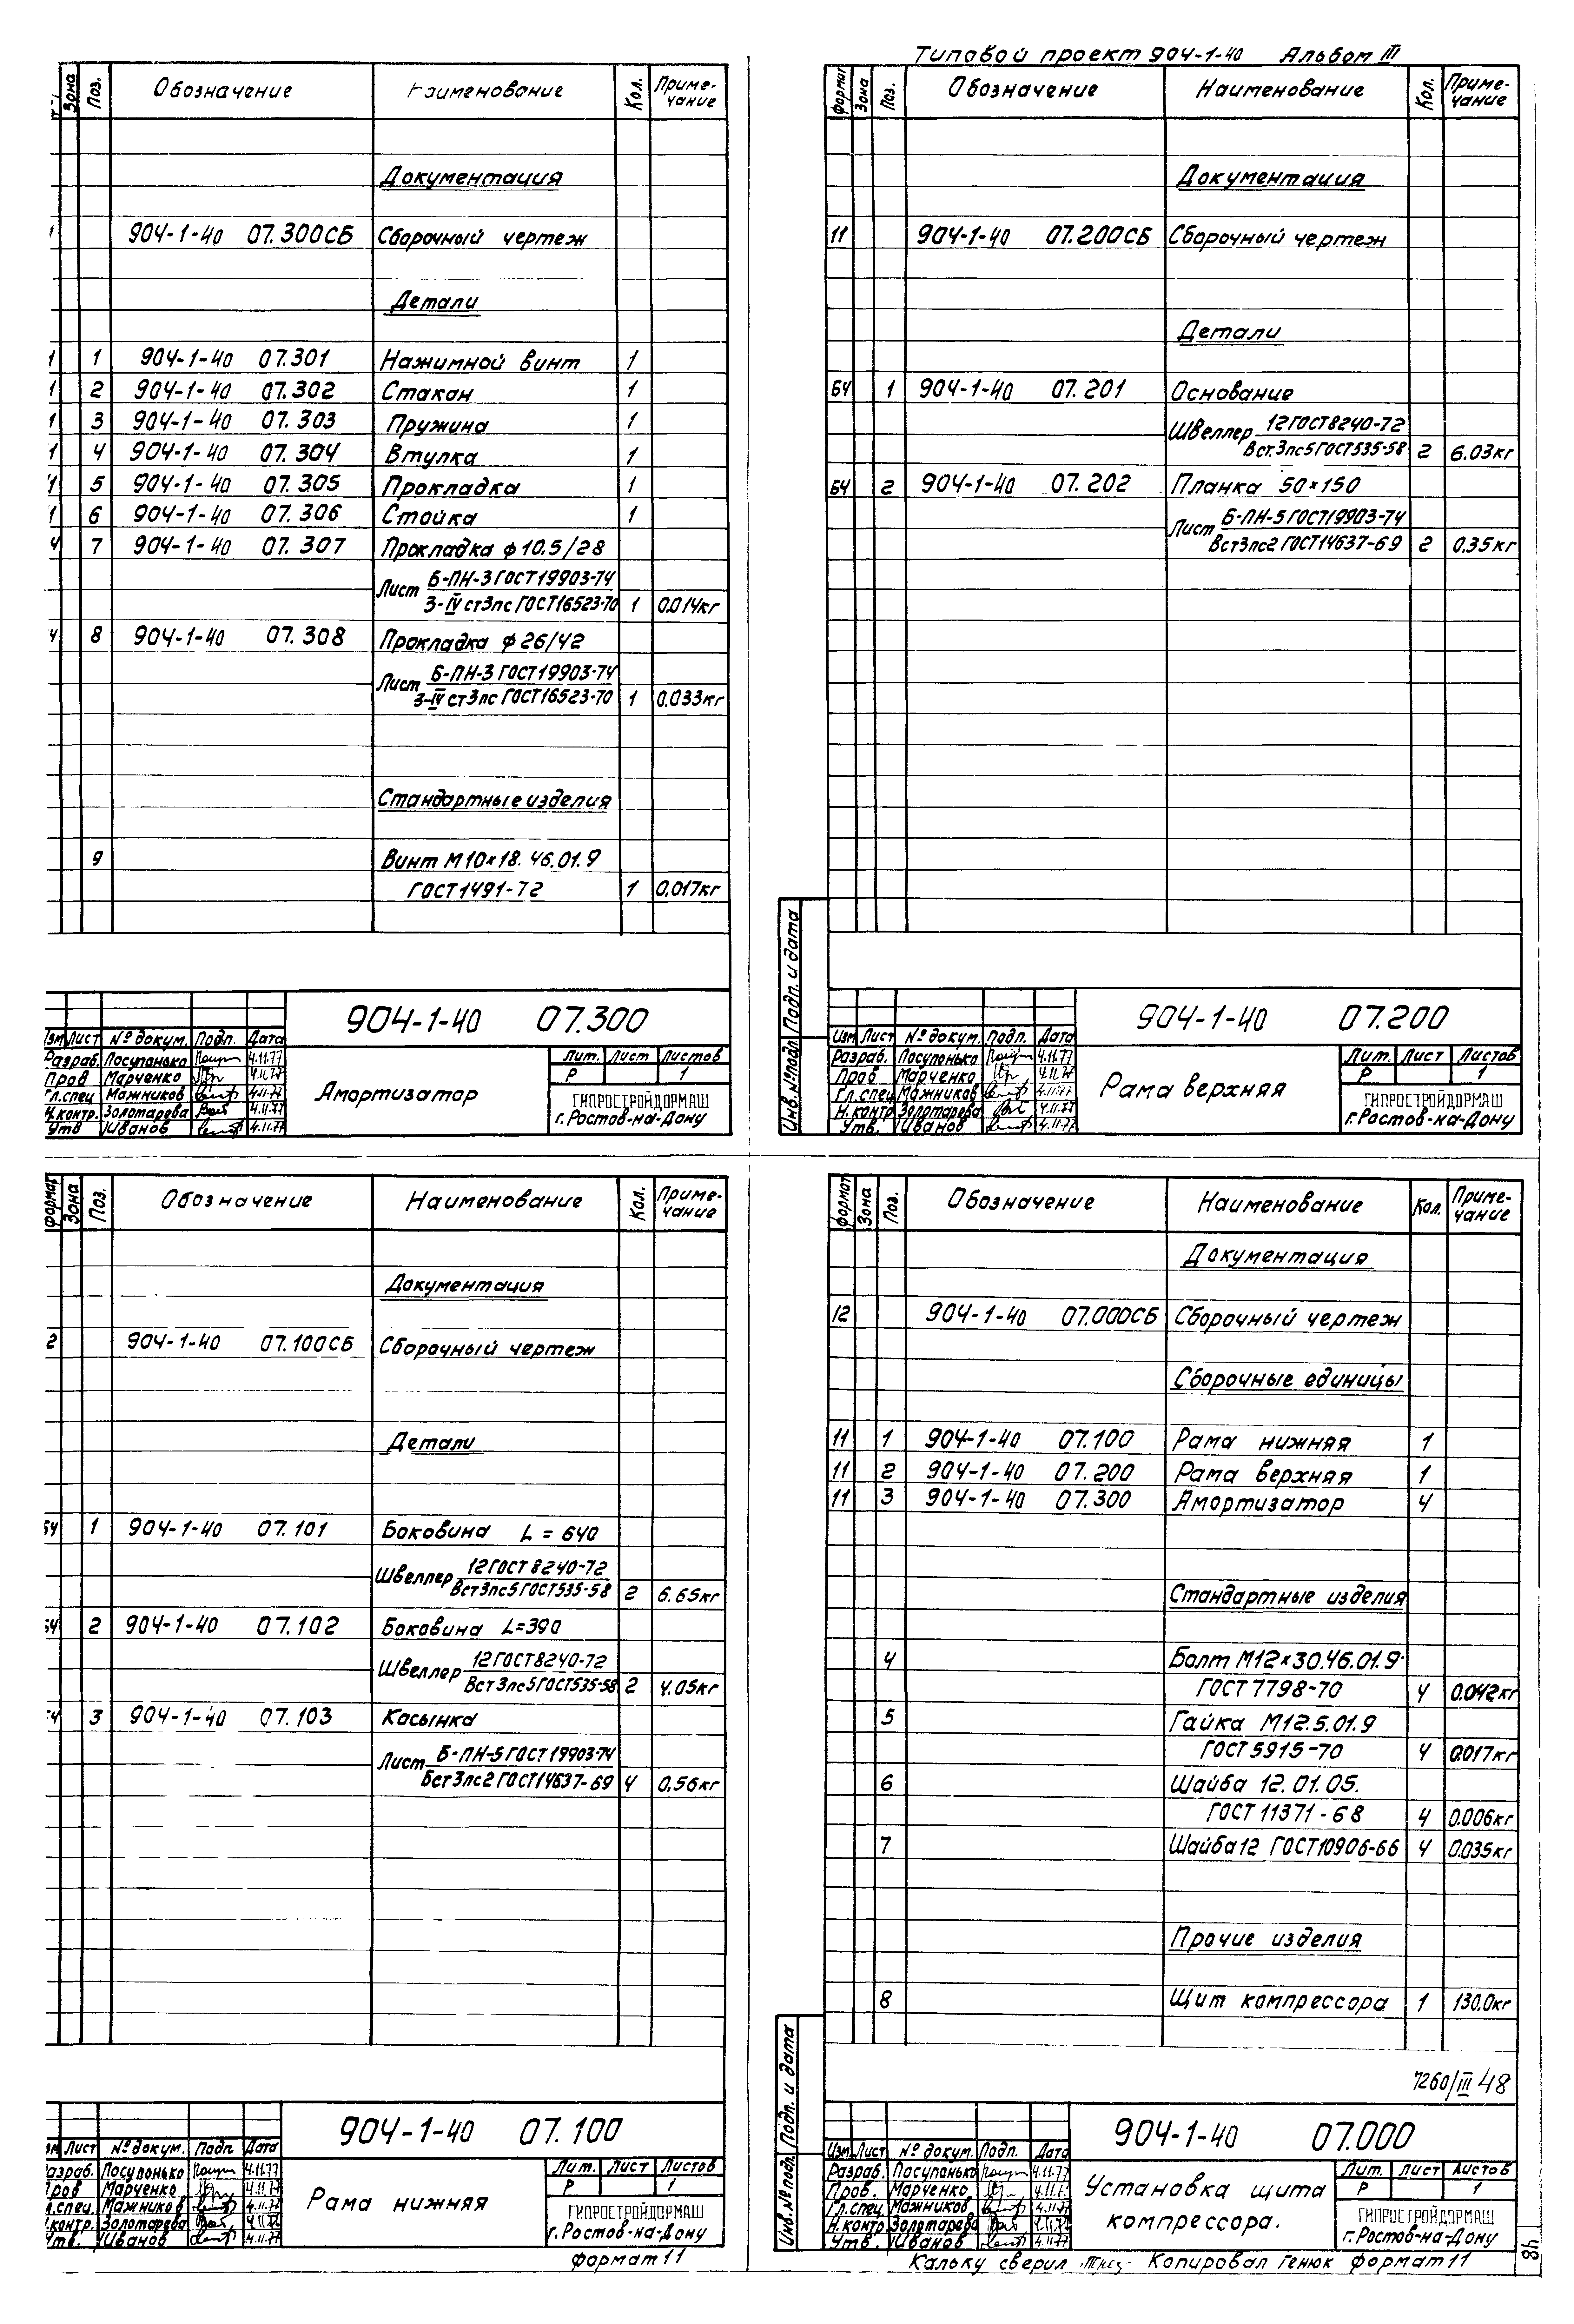 Типовой проект 904-1-40 Альбом III
Зона Поз. Обозначение Наименование Кол. Приме-чание
Документация
904-1-40 07.300СБ Сборочный чертеж
Детали
1 904-1-40 07.301 Нажимной винт 1
2 904-1-40 07.302 Стакан 1
3 904-1-40 07.303 Пружина 1
4 904-1-40 07.304 Втулка 1
5 904-1-40 07.305 Прокладка 1
6 904-1-40 07.306 Стойка 1
7 904-1-40 07.307 Прокладка ф10.5/28
Лист Б-ПН-3 ГОСТ19903-74
3-IV ст3пс ГОСТ16523-70 1 0.014кг
8 904-1-40 07.308 Прокладка ф26/42
Лист Б-ПН-3 ГОСТ19903-74
3-IV ст3пс ГОСТ16523-70 1 0.033кг
Стандартные изделия
9 Винт М10×18.46.01.9
ГОСТ1491-72 1 0.017кг
904-1-40 07.300
Изм Лист № докум. Подп. Дата
Разраб. Посупонько 4.11.77
Пров Марченко 4.11.77
Гл.спец Мажников 4.11.77
Н.контр. Золотарева 4.11.77
Утв Иванов 4.11.77
Амортизатор
Лит. Лист Листов
Р 1
ГИПРОСТРОЙДОРМАШ
г.Ростов-на-Дону
формат Зона Поз. Обозначение Наименование Кол. Приме-чание
Документация
11 904-1-40 07.200СБ Сборочный чертеж
Детали
БЧ 1 904-1-40 07.201 Основание
Швеллер 12ГОСТ8240-72
Вст.3пс5ГОСТ535-58 2 6.03кг
БЧ 2 904-1-40 07.202 Планка 50×150
Лист Б-ПН-5 ГОСТ19903-74
Вст3пс2 ГОСТ14637-69 2 0.35кг
Инв.№подл. Подп. и дата
904-1-40 07.200
Изм Лист № докум. Подп. Дата
Разраб. Посупонько 4.11.77
Пров Марченко 4.11.77
Гл.спец Мажников 4.11.77
Н.контр Золотарева 4.11.77
Утв. Иванов 4.11.77
Рама верхняя
Лит. Лист Листов
Р 1
ГИПРОСТРОЙДОРМАШ
г.Ростов-на-Дону
формат Зона Поз. Обозначение Наименование Кол. Приме-чание
Документация
2 904-1-40 07.100СБ Сборочный чертеж
Детали
1 904-1-40 07.101 Боковина L=640
Швеллер 12ГОСТ8240-72
Вст3пс5ГОСТ535-58 2 6.65кг
2 904-1-40 07.102 Боковина L=390
Швеллер 12ГОСТ8240-72
Вст3пс5ГОСТ535-58 2 4.05кг
3 904-1-40 07.103 Косынка
Лист Б-ПН-5 ГОСТ19903-74
Бст3пс2 ГОСТ14637-69 4 0.56кг
904-1-40 07.100
Лист № докум. Подп Дата
Разраб. Посупонько 4.11.77
Пров Марченко 4.11.77
Гл.спец. Мажников 4.11.77
Н.контр. Золотарева 4.11.77
Утв. Иванов 4.11.77
Рама нижняя
Лит. Лист Листов
Р 1
ГИПРОСТРОЙДОРМАШ
г.Ростов-на-Дону
формат 11
формат Зона Поз. Обозначение Наименование Кол. Приме-чание
Документация
12 904-1-40 07.000СБ Сборочный чертеж
Сборочные единицы
11 1 904-1-40 07.100 Рама нижняя 1
11 2 904-1-40 07.200 Рама верхняя 1
11 3 904-1-40 07.300 Амортизатор 4
Стандартные изделия
4 Болт М12×30.46.01.9
ГОСТ 7798-70 4 0.042кг
5 Гайка М12.5.01.9
ГОСТ 5915-70 4 0.017кг
6 Шайба 12.01.05.
ГОСТ 11371-68 4 0.006кг
7 Шайба12 ГОСТ10906-66 4 0.035кг
Прочие изделия
8 Щит компрессора 1 130.0кг
7260/III 48
Инв.№подл. Подп. и дата
904-1-40 07.000
Изм Лист № докум. Подп. Дата
Разраб. Посупонько 4.11.77
Пров. Марченко
Гл.спец Мажников 4.11.77
Н.контр Золотарева 4.11.77
Утв. Иванов 4.11.77
Установка щита
компрессора.
Лит. Лист Листов
Р 1
ГИПРОСТРОЙДОРМАШ
г.Ростов-на-Дону
Кальку сверил Копировал Генюк формат 11
48